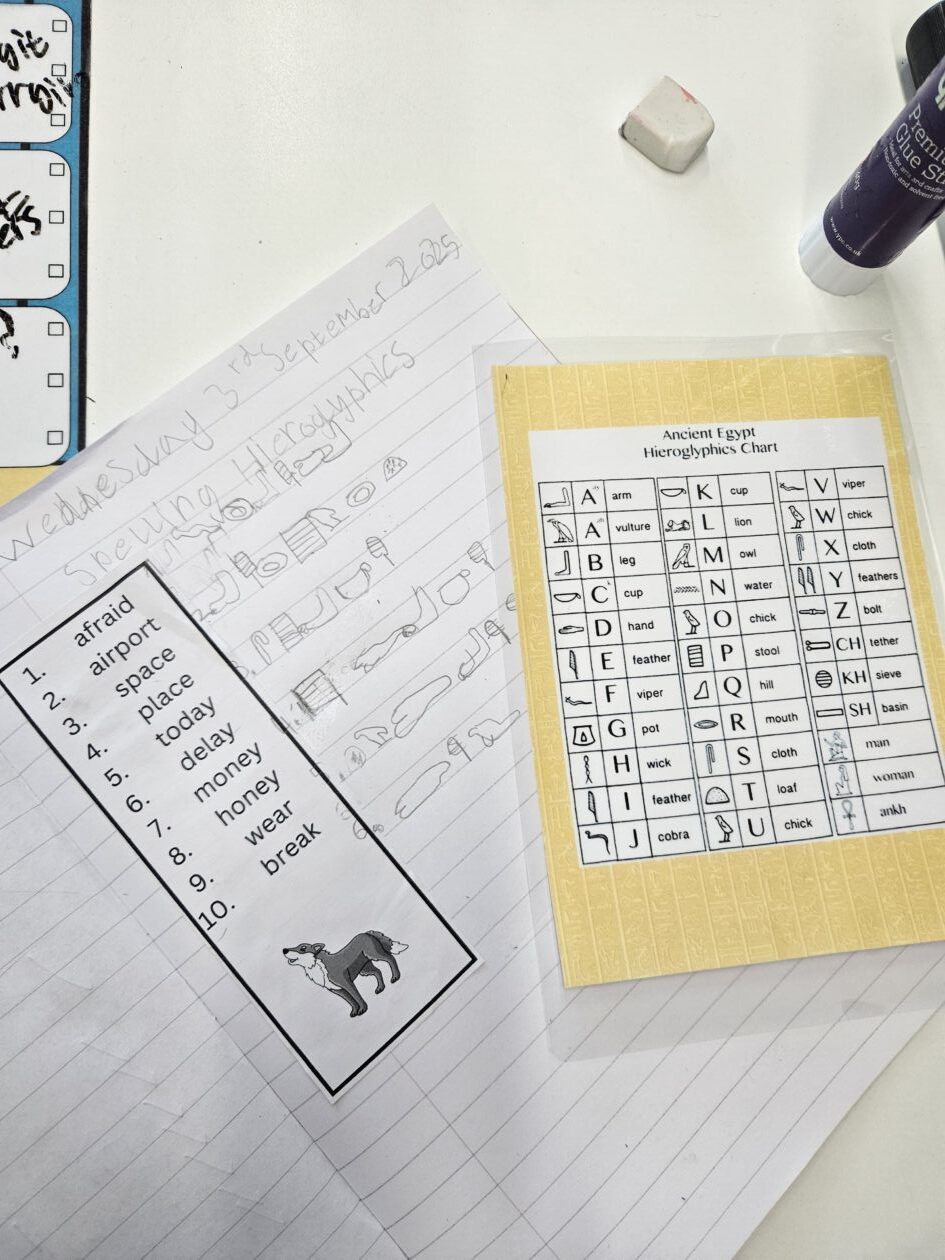 Wednesday 3rd September 2025
Spelling Hieroglyphics
1. afraid
2. airport
3. space
4. place
5. today
6. delay
7. money
8. honey
9. wear
10. break
Ancient Egypt
Hieroglyphics Chart
A arm
A vulture
B leg
C cup
D hand
E feather
F viper
G pot
H wick
I feather
J cobra
K cup
L lion
M owl
N water
O chick
P stool
Q hill
R mouth
S cloth
T loaf
U chick
V viper
W chick
X cloth
Y feathers
Z bolt
CH tether
KH sieve
SH basin
man
woman
ankh
Glue